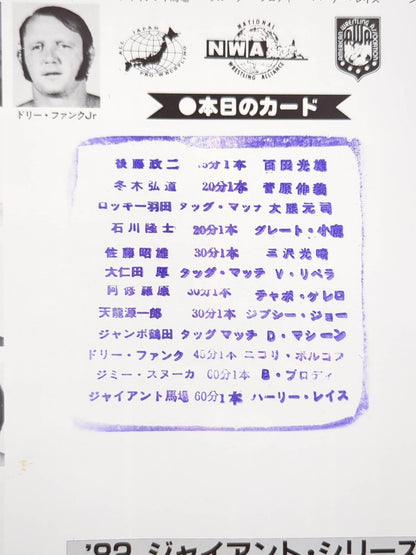 ALL JAPAN
PRO WRESTLING
NATIONAL
NWA
WRESTLING ALLIANCE
AMERICAN WRESTLING ASSOCIATION
AWA
ドリー・ファンクJr
●本日のカード
後藤政二 15分1本 百田光雄
冬木弘道 20分1本 菅原伸義
ロッキー羽田 タッグ・マッチ 大熊元司
石川隆士 20分1本 グレート・小鹿
佐藤昭雄 30分1本 三沢光晴
大仁田厚 タッグ・マッチ V・リベラ
阿修羅原 30分1本 チャボ・ゲレロ
天龍源一郎 30分1本 ジプシー・ジョー
ジャンボ鶴田 タッグマッチ D・マシーン
ドリー・ファンク 45分1本 ニコリ・ボルコフ
ジミー・スヌーカ 60分1本 B・ブロディ
ジャイアント馬場 60分1本 ハーリー・レイス
'82 ジャイアント・シリーズ